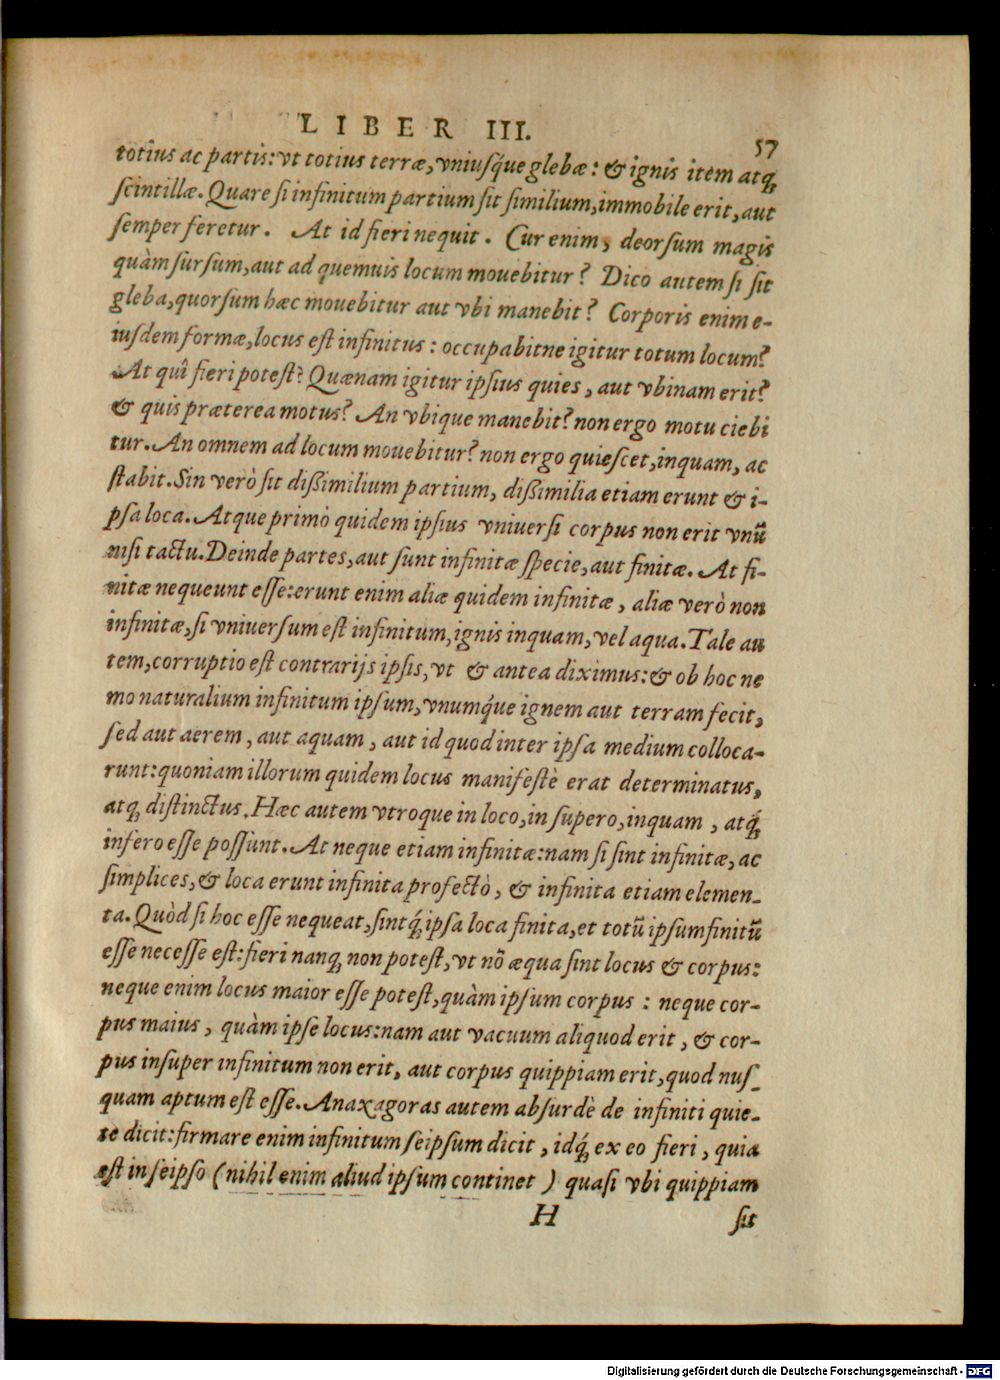 LIBER III. 57
totîus ac partis: vt totius terræ, vniusq́ue glebæ: & ignis item atq;
scintillæ. Quare si infinitum partium sit similium, immobile erit, aut
semper feretur. At id fieri nequit. Cur enim, deorsum magis
quàm sursum, aut ad quemuis locum mouebitur? Dico autem si sit
gleba, quorsum hæc mouebitur aut vbi manebit? Corporis enim e-
iusdem formæ, locus est infinitus: occupabitne igitur totum locum?
At quî fieri potest? Quænam igitur ipsius quies, aut vbinam erit?
& quis præterea motus? An vbique manebit? non ergo motu ciebi
tur. An omnem ad locum mouebitur? non ergo quiescet, inquam, ac
stabit. Sin verò sit dißimilium partium, dißimilia etiam erunt & i-
psa loca. Atque primò quidem ipsius vniuersi corpus non erit vnũ
nisi tactu. Deinde partes, aut sunt infinitæ specie, aut finitæ. At fi-
nitæ nequeunt esse: erunt enim aliæ quidem infinitæ, aliæ verò non
infinitæ, si vniuersum est infinitum, ignis inquam, vel aqua. Tale au
tem, corruptio est contrarijs ipsis, vt & antea diximus: & ob hoc ne
mo naturalium infinitum ipsum, vnumq́ue ignem aut terram fecit,
sed aut aerem, aut aquam, aut id quod inter ipsa medium colloca-
runt: quoniam illorum quidem locus manifestè erat determinatus,
atq; distinctus. Hæc autem vtroque in loco, in supero, inquam, atq́;
infero esse possunt. At neque etiam infinitæ: nam si sint infinitæ, ac
simplices, & loca erunt infinita profectò, & infinita etiam elemen-
ta. Quòd si hoc esse nequeat, sintq́; ipsa loca finita, et totũ ipsum finitũ
esse necesse est: fieri nanq; non potest, vt nõ æqua sint locus & corpus:
neque enim locus maior esse potest, quàm ipsum corpus: neque cor-
pus maius, quàm ipse locus: nam aut vacuum aliquod erit, & cor-
pus insuper infinitum non erit, aut corpus quippiam erit, quod nus-
quam aptum est esse. Anaxagoras autem absurdè de infiniti quie-
te dicit: firmare enim infinitum seipsum dicit, idq́; ex eo fieri, quia
est in seipso (nihil enim aliud ipsum continet) quasi vbi quippiam
H sit
Digitalisierung gefördert durch die Deutsche Forschungsgemeinschaft - DFG